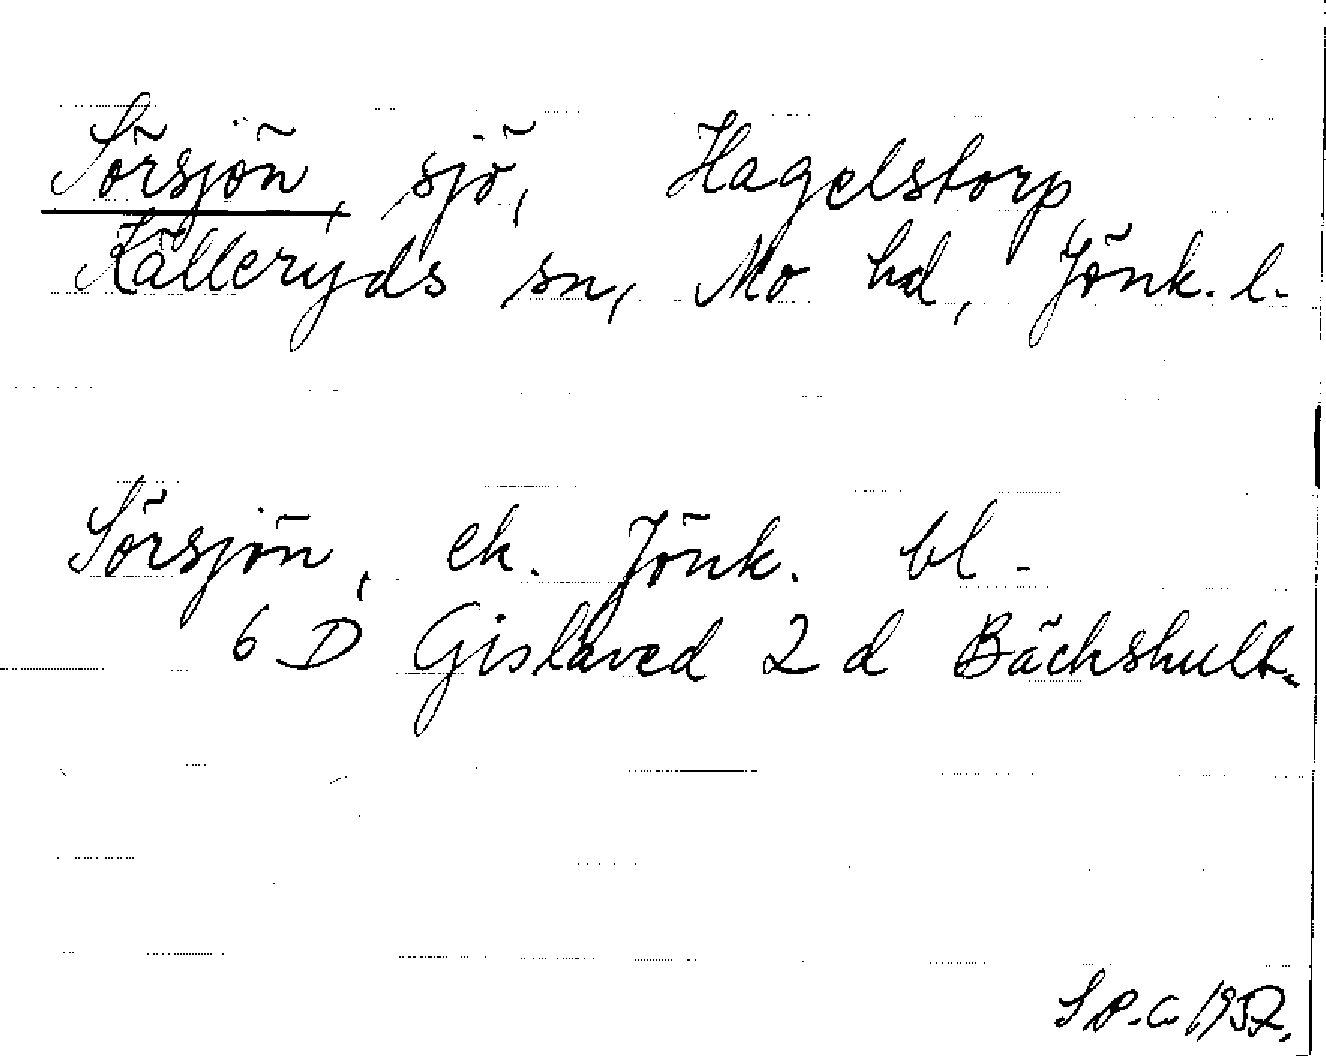 Sörsjön, sjö, Hagelstorp
Källeryds sn, Mo hd, Jönk. l.
Sörsjön, ek. Jönk. bl.
6 D Gislaved 2 d Bäckshult.
1957.